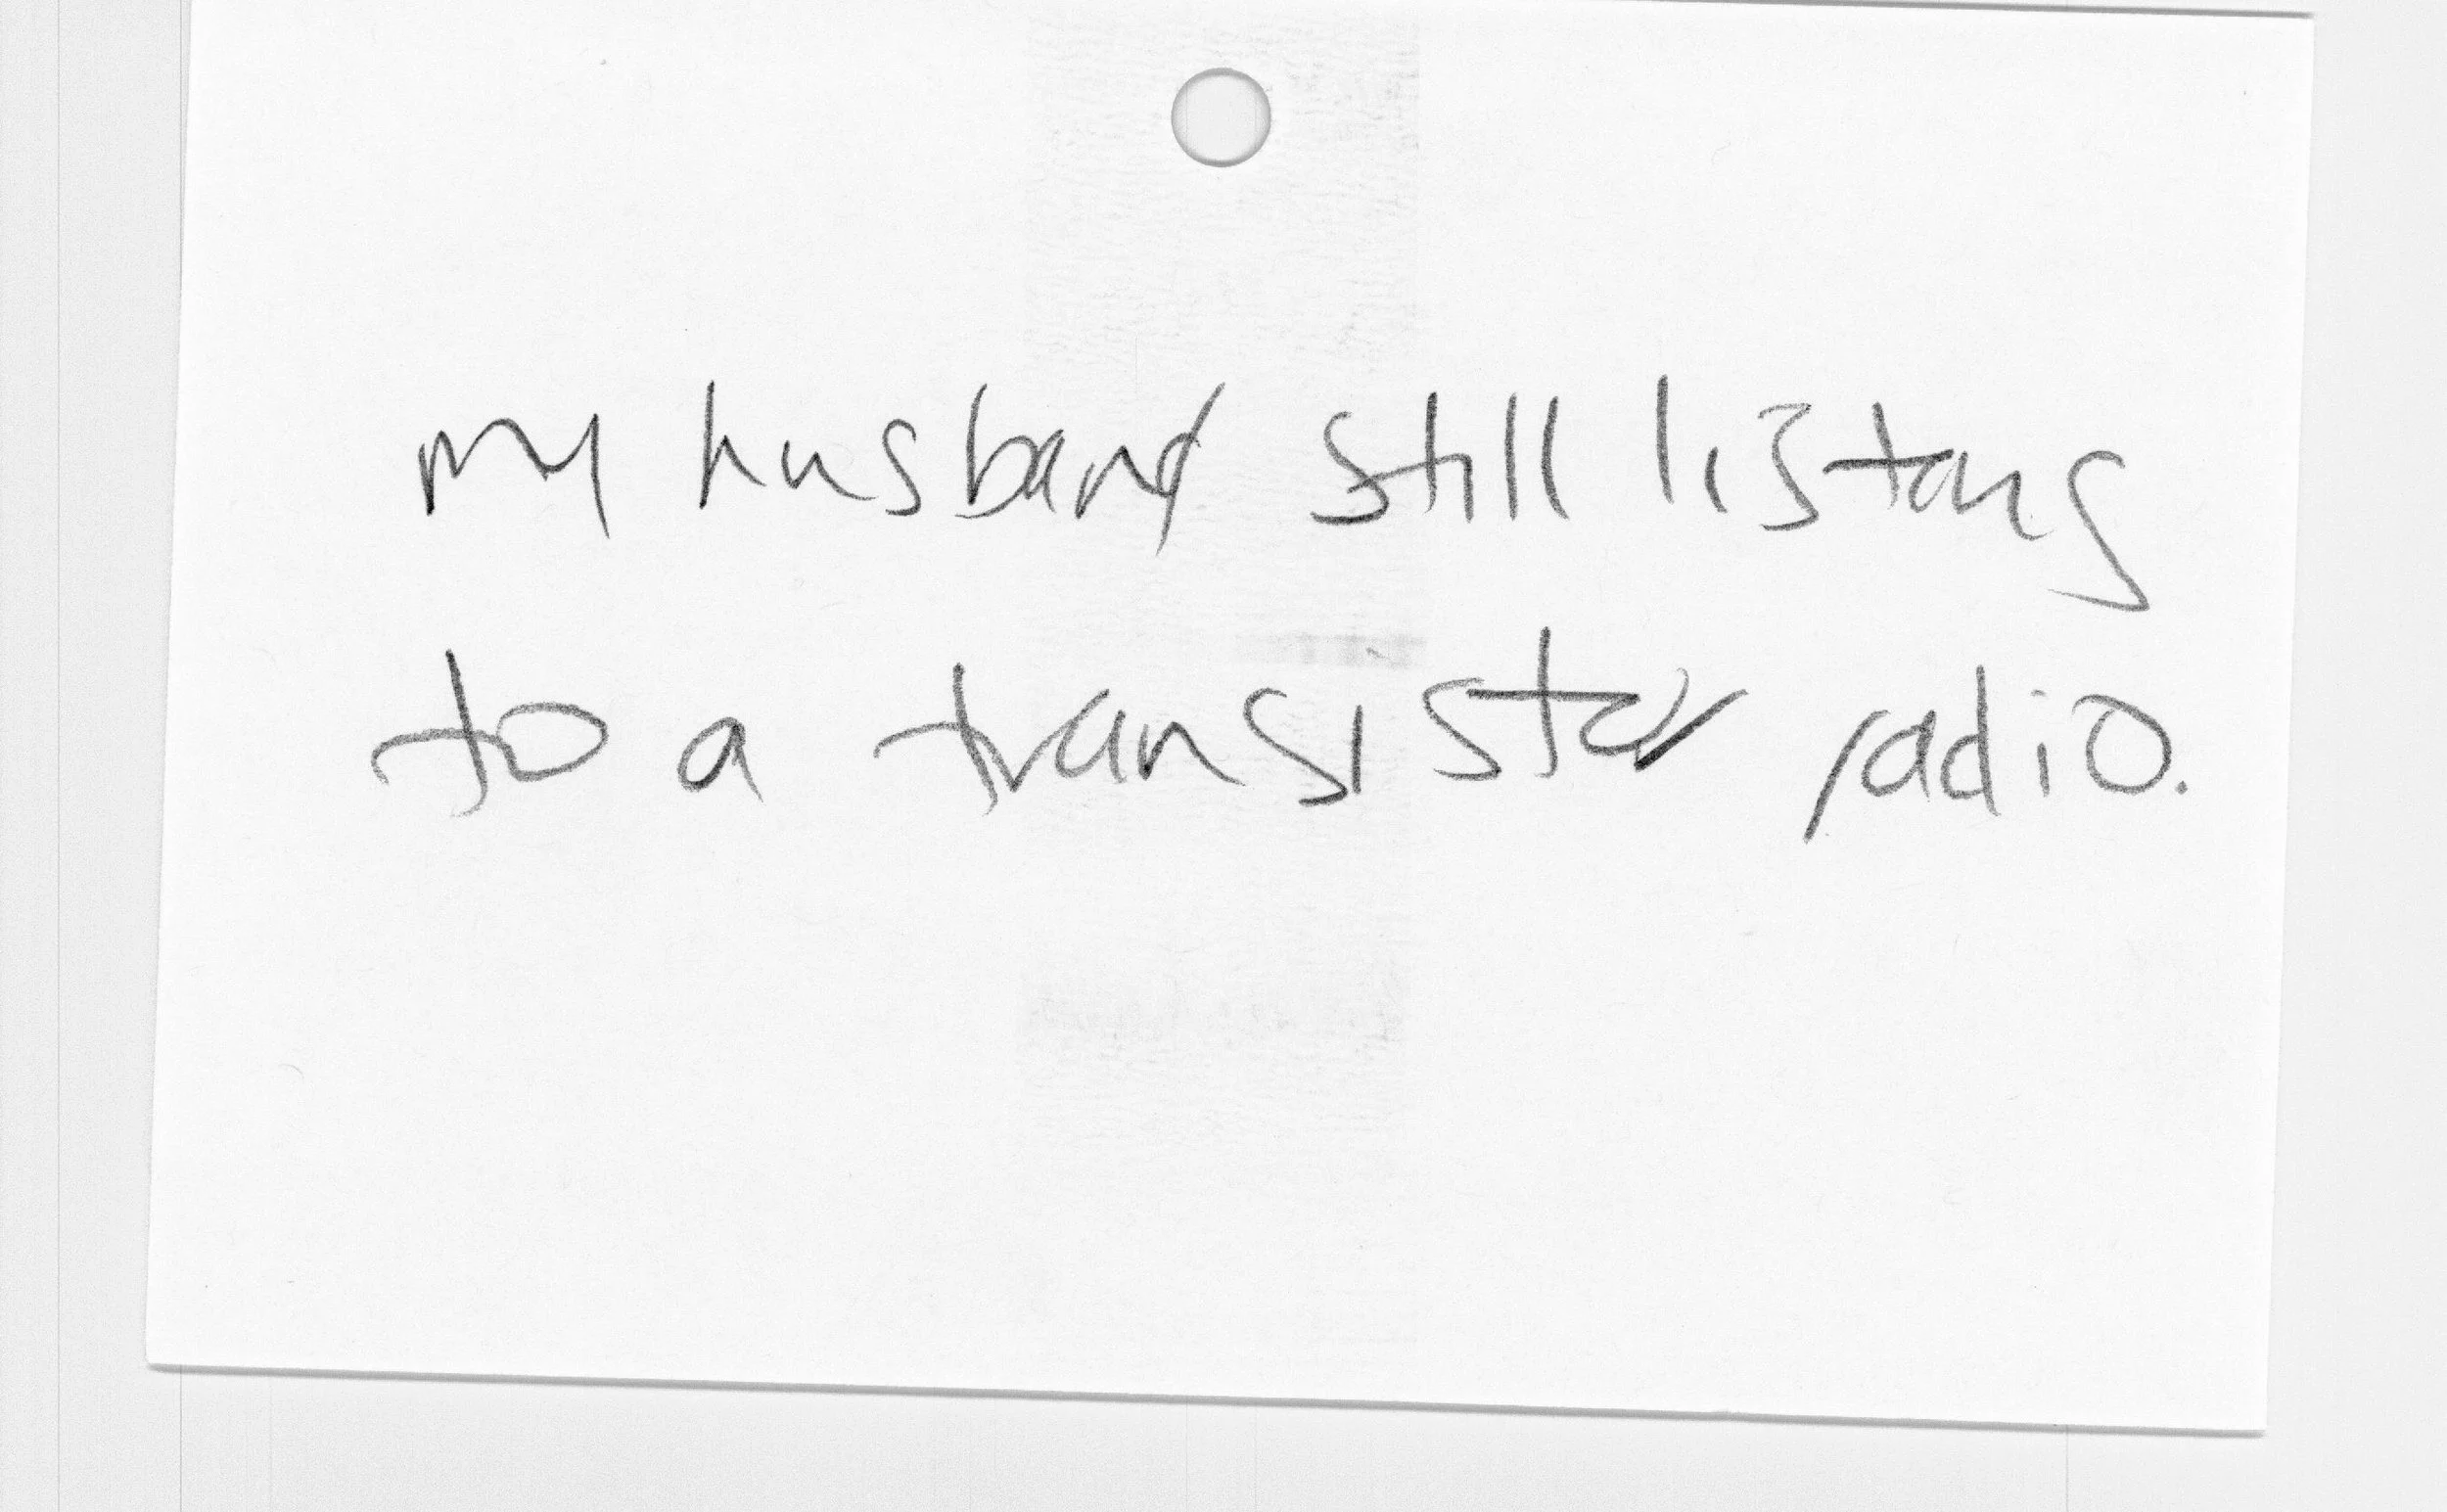 my husband still listens
to a transistor radio.